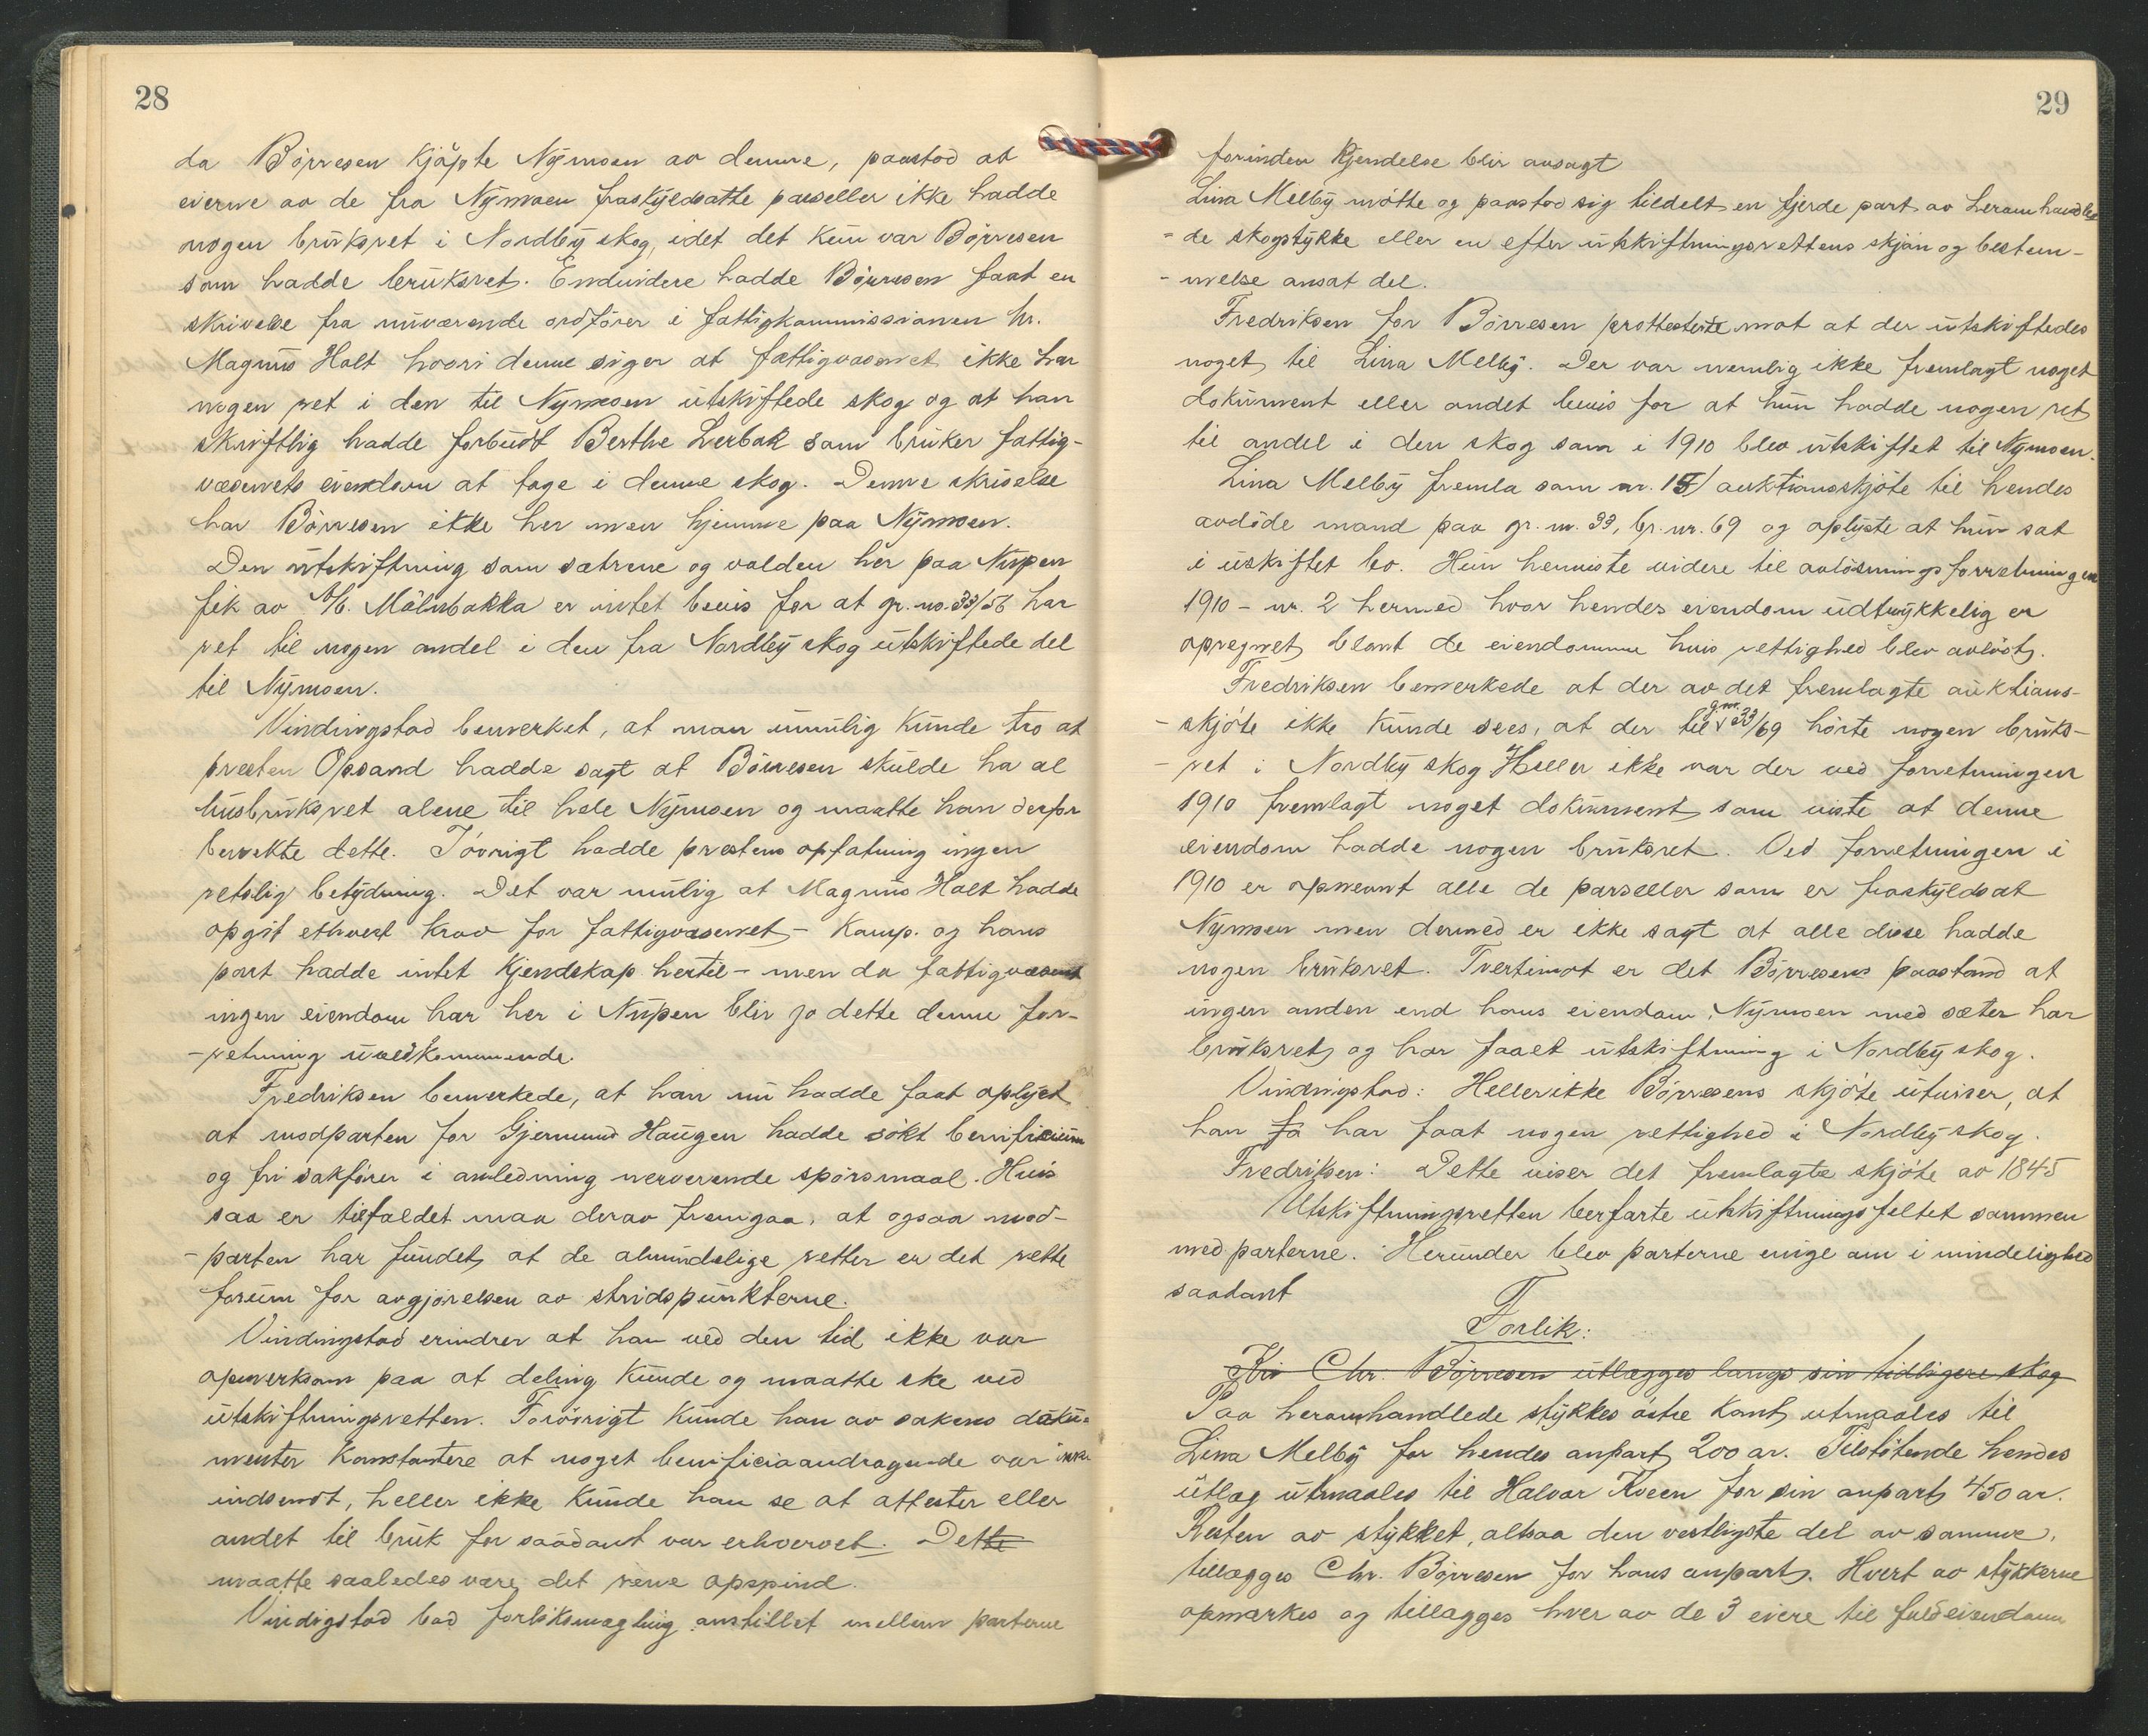 28
da Børresen kjøpte Nymoen av denne, paastod at
eierne av de fra Nymoen fraskyldsatte parseller ikke hadde
nogen bruksret i Nordby skog, idet det kun var Børresen
som hadde bruksret. Endvidere hadde Børresen faat en
skrivelse fra nuværende ordfører i fattigkommissionen hr.
Magnus Holt hvori denne siger at fattigvæsenet ikke har
nogen ret i den til Nymoen utskiftede skog og at han
skriftlig hadde forbudt Berthe Lerbak som bruker fattig-
væsenets eiendom at tage i denne skog. Denne skrivelse
har Børresen ikke her men hjemme paa Nymoen.
Den utskiftning som sætrene og volden her paa Nupen
fik av A/B. Mølnbakka er intet bevis for at gr. no. 33/56 har
ret til nogen andel i den fra Nordby skog utskiftede del
til Nymoen.
Vindingstad bemerket, at man umulig kunde tro at
presten Opsand hadde sagt at Børresen skulde ha al
husbruksret alene til hele Nymoen og maatte han derfor
benekte dette. Iøvrigt hadde prestens opfatning ingen
retslig betydning. Det var mulig at Magnus Holt hadde
opgit ethvert krav for fattigvæsenet - Komp. og hans
part hadde intet kjendskap hertil - men da fattigvæsenet
ingen eiendom har her i Nupen blir jo dette denne for-
-retning uvedkommende.
Fredriksen bemerkede, at han nu hadde faat oplyst
at modparten for Gjermund Haugen hadde søkt benificium
og fri sakfører i anledning nerverende spørsmaal. Hvis
saa er tilfældet maa derav fremgaa, at ogsaa mod-
-parten har fundet at de almindelige retter er det rette
forum for avgjørelsen av stridspunkterne.
Vindingstad erindrer at han ved den tid ikke var
opmerksom paa at deling kunde og maatte ske ved
utskiftningsretten. Forøvrigt kunde han av sakens doku-
menter konstantere at noget benificiaandragende var ikke
indsendt, heller ikke kunde han se at attester eller
andet til bruk for saadant var erhvervet. Dette
maatte saaledes være det rene opspind.
Vindigstad bad forliksmægling anstillet mellem parterne
29
forinden kjendelse blir avsagt
Lina Melby møtte og paastod sig tildelt en fjerde part av heromhandle
-de skogstykke eller en efter utskiftningsrettens skjøn og bestem-
-melse ansat del.
Fredriksen for Børresen prottesterte mot at der utskiftedes
noget til Lina Melby. Der var nemlig ikke fremlagt noget
dokument eller andet bevis for at hun hadde nogen ret
til andel i den skog som i 1910 blev utskiftet til Nymoen.
Lina Melby fremla som nr. 15/ auktionsskjøte til hendes
avdøde mand paa gr. nr. 33, br. nr. 69 og oplyste at hun sat
i uskiftet bo. Hun henviste videre til avløsningsforretningen
1910 - nr. 2 hermed hvor hendes eiendom udtrykkelig er
opregnet blant de eiendomme hvis rettighed blev avløst.
Fredriksen bemerkede at der av det fremlagte auktions-
-skjøte ikke kunde sees, at der til g.nr. 33/69 hørte nogen bruks-
-ret i Nordby skog Heller ikke var der ved forretningen
1910 fremlagt noget dokument som viste at denne
eiendom hadde nogen bruksret. Ved forretningen i
1910 er opnevnt alle de parseller som er fraskyldsat
Nymoen men dermed er ikke sagt at alle disse hadde
nogen bruksret. Tvertimot er det Børresens paastand at
ingen anden end hans eiendom, Nymoen med sæter har
bruksret og har faaet utskiftning i Nordby skog.
Vindingstad: Heller ikke Børresens skjøte utviser, at
han fa har faat nogen rettighed i Nordby skog.
Fredriksen: Dette viser det fremlagte skjøte av 1845
Utskiftningsretten berfarte utskiftningsfeltet sammen
med parterne. Herunder blev parterne enige om i mindelighed
saadant
Forlik:
Chr. Børresen utlægges langs sin tidligere skog
Paa heromhandlede stykkes østre kant utmaales til
Lina Melby for hendes anpart 200 ar. Tilstøtende hendes
utlæg utmaales til Halvor Kveen for sin anpart 450 ar.
Resten av stykket, altsaa den vestligste del av samme,
tillægges Chr. Børresen for hans anpart. Hvert av stykkerne
opmerkes og tillægges hver av de 3 eiere til fuld eiendom